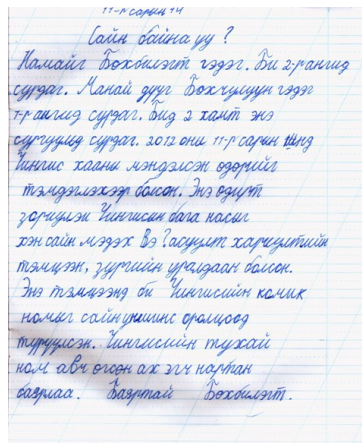 11-р сарын 14
Сайн байна уу ?
Намайг Бөхбилэгт гэдэг. Би 2-р ангид
сурдаг. Манай дүүг Бөхчулуун гэдэг
1-р ангид сурдаг. Бид 2 хамт энэ
сургуульд сурдаг. 2012 оны 11-р сарын нд
Чингис хааны мэндэлсэн өдөрийг
тэмдэглэхээр болсон. Энэ өдөрт
зориулэн Чингисин бага насыг
хэн сайн мэдэх вэ? асуулт хариултийн
тэмцээн, зургийн уралдаан болсон.
Энэ тэмцээнд би Чингисийн комик
номыг сайн уншиж оролцоод
түрүүлсэн. Чингисийн тухай
ном авч өгсөн ах эгч нартаа
баярлаа. Баяртай Бөхбилэгт.